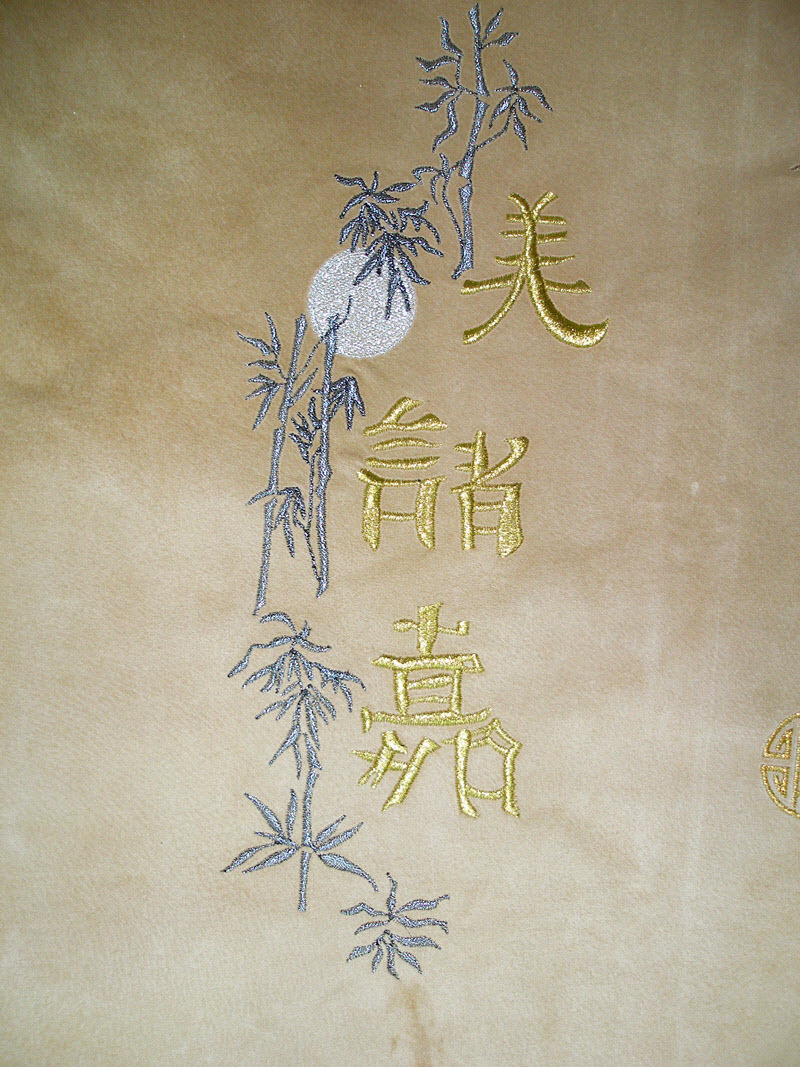 美諸嘉